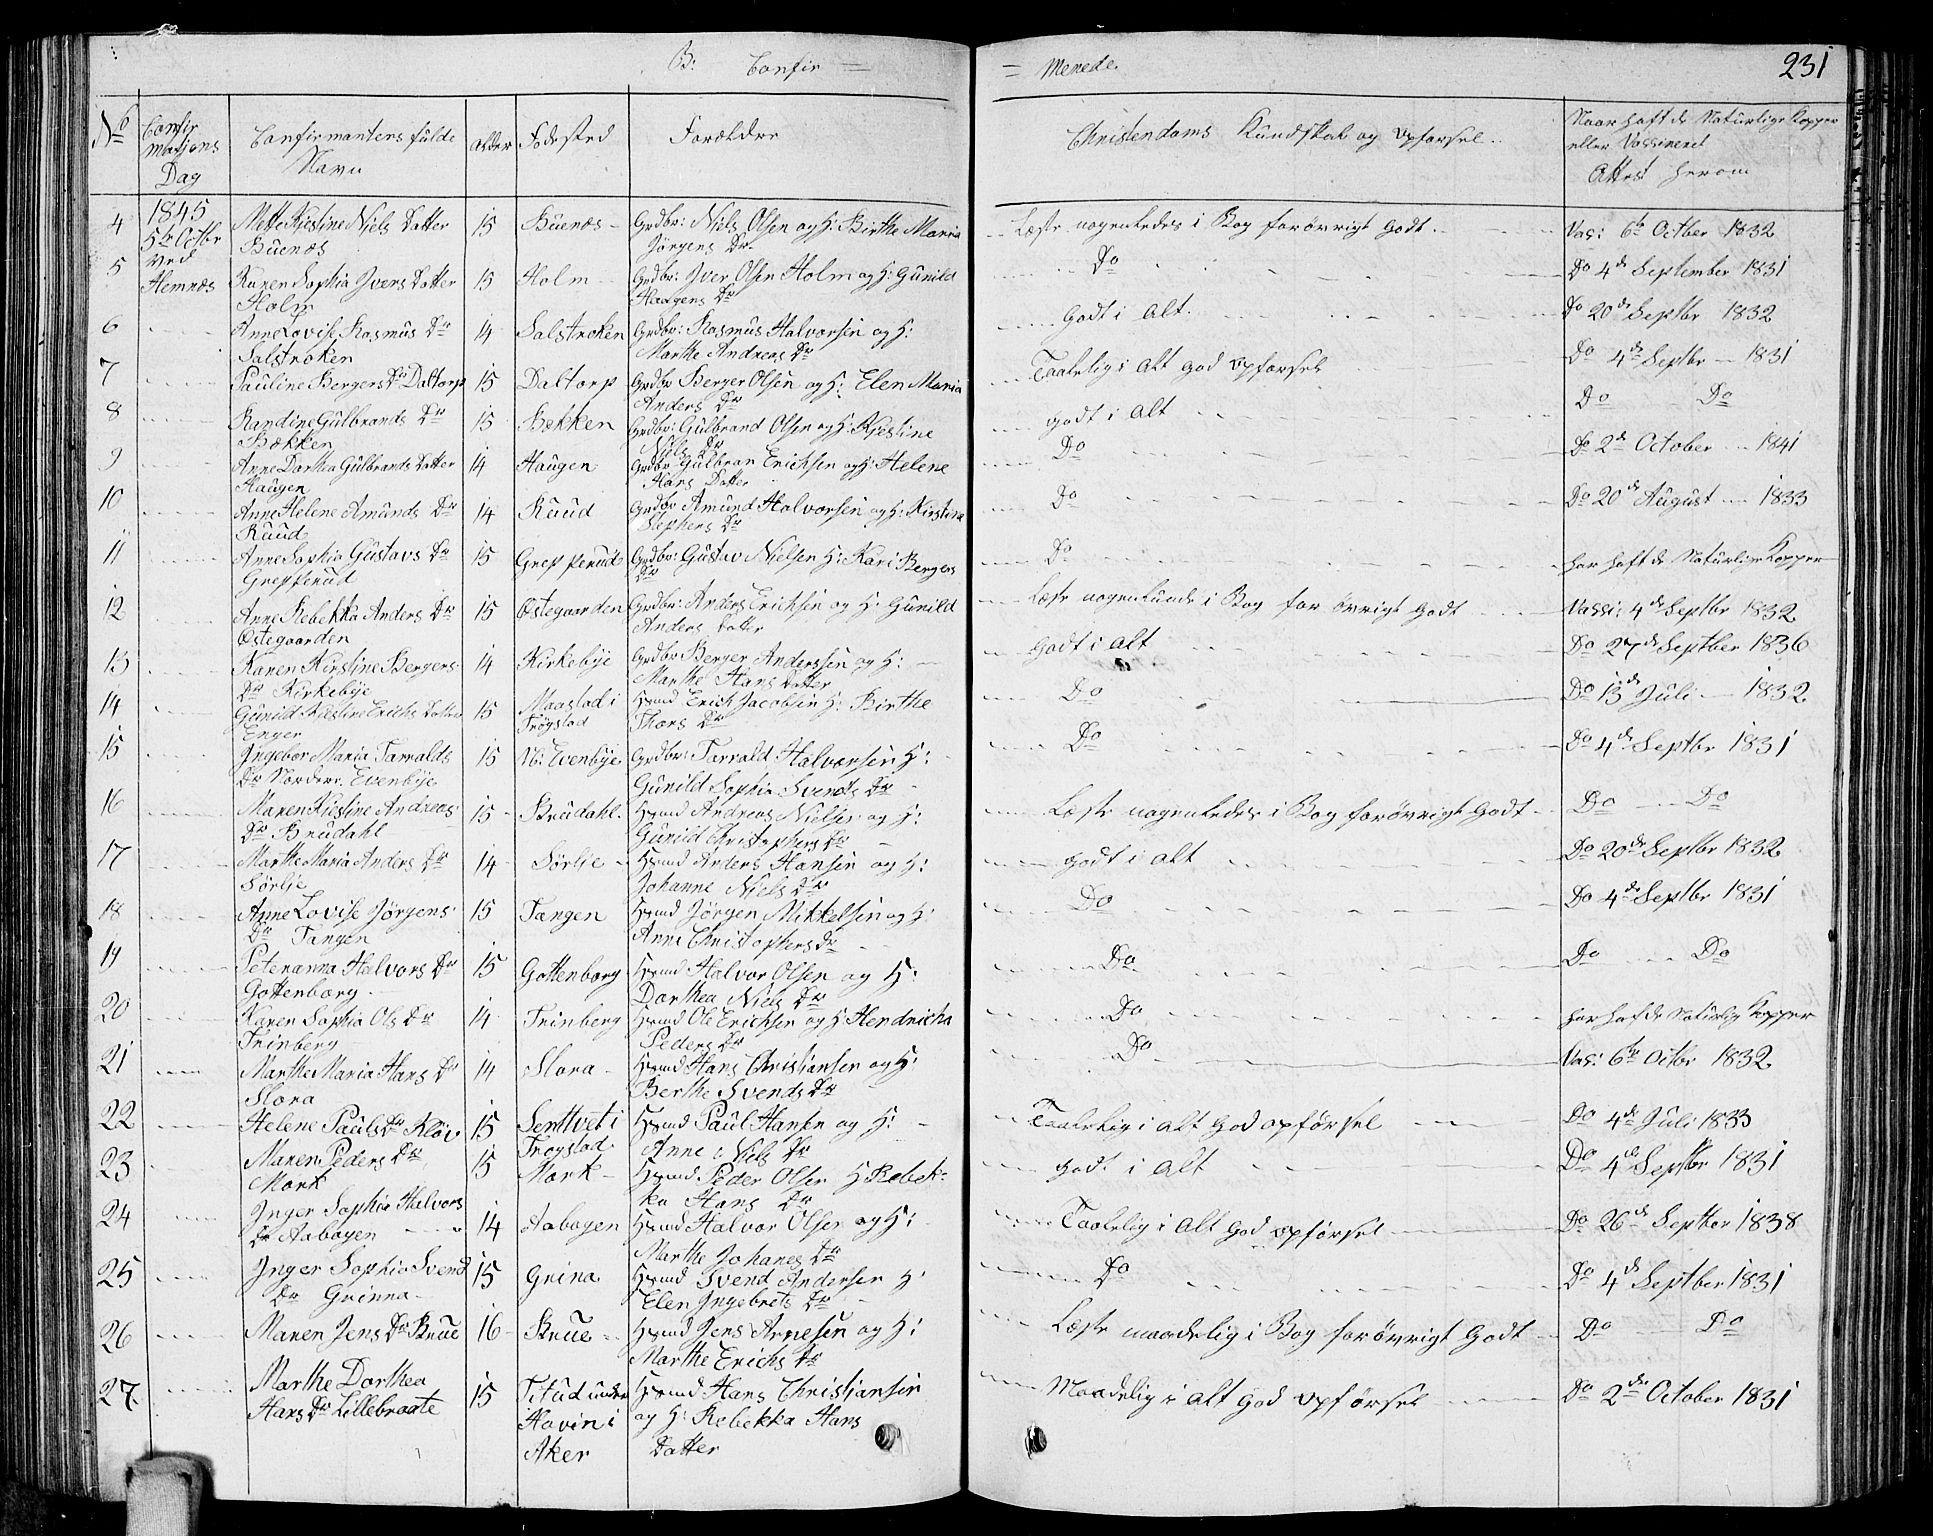 B: Confir = = Menede. 231
No Confirmasjons Dag Confirmantens fulde Navn Alder Fødested Forældre Christendoms Kundskab og Opførsel Naar haft de Naturlige Kopper eller Vassineret Attest herom
1845 5te Octbr ved Hemnæs
4 Mette Kjestine Niels Datter Buenæs 15 Buenæs Grdbr: Niels Olsen og H: Birthe Maria Jörgens Dr Læste nogenledes i Bog forövrigt Godt Vas: 6te October 1832
5 Karen Sophia Ivers Datter Holm 15 Holm Grdbr: Iver Olsen Holm og H: Gunild Haagens Dr Do Do 4de September 1831
6 Anne Lovise Rasmus Dr Salstroken 14 Salstroken Grdbr: Rasmus Halvorsen og H: Marthe Andreas Dr Godt i Alt. Do 20de Septbr 1832
7 Pauline Bergers Dr Daltorp 15 Daltorp Grdbr Berger Olsen og H: Elen Maria Anders Dr Taalelig i Alt God Opförsel Do 4de Septbr 1831
8 Randine Gulbrands Dr Bækken 15 Bekken Grdbr: Gulbrand Olsen og H: Kjestine Niels Dr Godt i Alt Do Do
9 Anne Dorthea Gulbrands Datter Haugen 14 Haugen Grdbr Gulbran Erichsen og H: Helene Hans Datter Do Do 2de October 1841
10 Anne Helene Amunds Dr Ruud 14 Ruud Grdbr Amund Halvorsen og H: Kirstina Stephens Dr Do Do 20de August 1833
11 Anne Sophia Gustavs Dr Grepperud 15 Grepperud Grdbr: Gustav Nielsen H: Kari Bergers Dr Do har haft de Naturlige Kopper
12 Anne Rebekka Anders Dr Östegaarden 15 Östegaarden Grdbr: Anders Erichsen og H: Gunild Anders Datter Læste nogenlunde i Bog for övrigt Godt Vassi: 4de Septbr 1832
13 Karen Kirstine Bergers Dr Kirkebye 14 Kirkebye Grdbr Berger Anderssen og H: Marthe Hans Datter Godt i Alt Do 27de Septber 1836
14 Gunild Kjestine Erichs Datter Enger 15 Maastad i Trögstad Hsmd Erich Jacobsen H: Birthe Thors Dr Do Do 13de Juli 1832
15 Ingebor Maria Tarralds Dr Nordere. Evenbye 15 N: Evenbye Grdbr: Tarrald Halvorsen H: Gunild Sophia Svends Dr Do Do 4de Septbr 1831
16 Maren Kiestine Andreas Dr Brudahl 15 Brudahl. Hsmd Andreas Nielsen og H: Gunild Christophers Dr Læste nogenledes i Bog forövrigt Godt Do Do
17 Marthe Maria Anders Dr Sörlie 14 Sörlie Hsmd Anders Hansen og H: Johanne Niels Dr Godt i Alt Do 20de Septbr 1832
18 Anne Lovise Jörgens Dr Tangen 15 Tangen Hsmd Jörgen Mikkelsen og H: Anne Christophers Dr Do Do 4de Septbr 1831
19 Peteranna Halvors Dr Gottenborg 15 Gottenborg Hsmd Halvor Olsen og H: Dorthea Niels Dr Do Do Do
20 Karen Sophia Ols Dr Trinberg 14 Trinberg Hsmd Ole Erichsen og H: Hendricha Peders Dr Do har hafde Naturlig Kopper
21 Marthe Maria Hans Dr Slora 14 Slora Hsmd Hans Christjansen og H: Berthe Svends Dr Do Vas: 6te Octbr 1832
22 Helene Pauls Dr Klöv 15 Senttvet i Trogstad Hsmd Paul Hansen og H: Anne Niels Dr Taalelig i Alt God opförsel Do 4de Juli 1833
23 Maren Peders Dr Mork 15 Mork Hsmd Peder Olsen H Rebekka Hans Dr Godt i Alt Do 4de Septbr 1831
24 Inger Sophia Halvors Dr Aabogen 14 Aabogen Hsmd Halvor Olsen og H: Marthe Johanes Dr Taalelig i Alt God opförsel Do 26de Septber 1838
25 Inger Sophia Svend Dr Grinna 15 Grina Hsmd Svend Andersen H: Elen Ingebrets Dr Do Do 4de Septber 1831
26 Maren Jens Dr Krue 16 Krue Hsmd Jens Arnesen og H: Marthe Erichs Dr Læste maadelig i Bog forövrigt Godt Do Do
27. Marthe Dorthea Hans Dr Lillebraate 15 under Hovin i Aker Hsmd Hans Christjansen og H: Rebekka Hans Datter Maadelig i Alt God Opförsel Do 2de October 1831